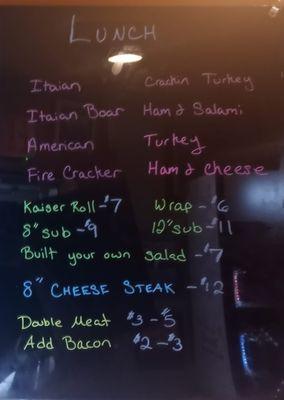 LUNCH
Itaian Crackin Turkey
Itaian Boar Ham & Salami
American Turkey
Fire Cracker Ham & cheese
Kaiser Roll - $7 Wrap - $6
8" sub - $9 12" sub - $11
Built your own salad - $7
8" CHEESE STEAK - $12
Double Meat $3 - $5
Add Bacon $2 - $3